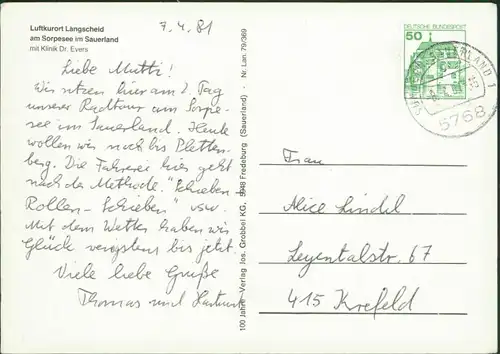 Luftkurort Langscheid
am Sorpesee im Sauerland
mit Klinik Dr. Evers
7.4.81
Liebe Mutti!
Wir sitzen hier am 2. Tag
unserer Radtour am Sorpe-
see im Sauerland. Heute
wollen wir noch bis Pletten-
berg. Die Fahrerei hier geht
nach der Methode "Schieben-
Rollen-Schieben" usw.
Mit dem Wetter haben wir
Glück wenigstens bis jetzt.
Viele liebe Grüße
Thomas und Hartmut
100 Jahre Verlag Jos. Grobbel KG, 5948 Fredeburg (Sauerland) · Nr. Lan. 79/369
DEUTSCHE BUNDESPOST
50
5768
Frau
Alice Lindel
Leyentalstr. 67
415 Krefeld